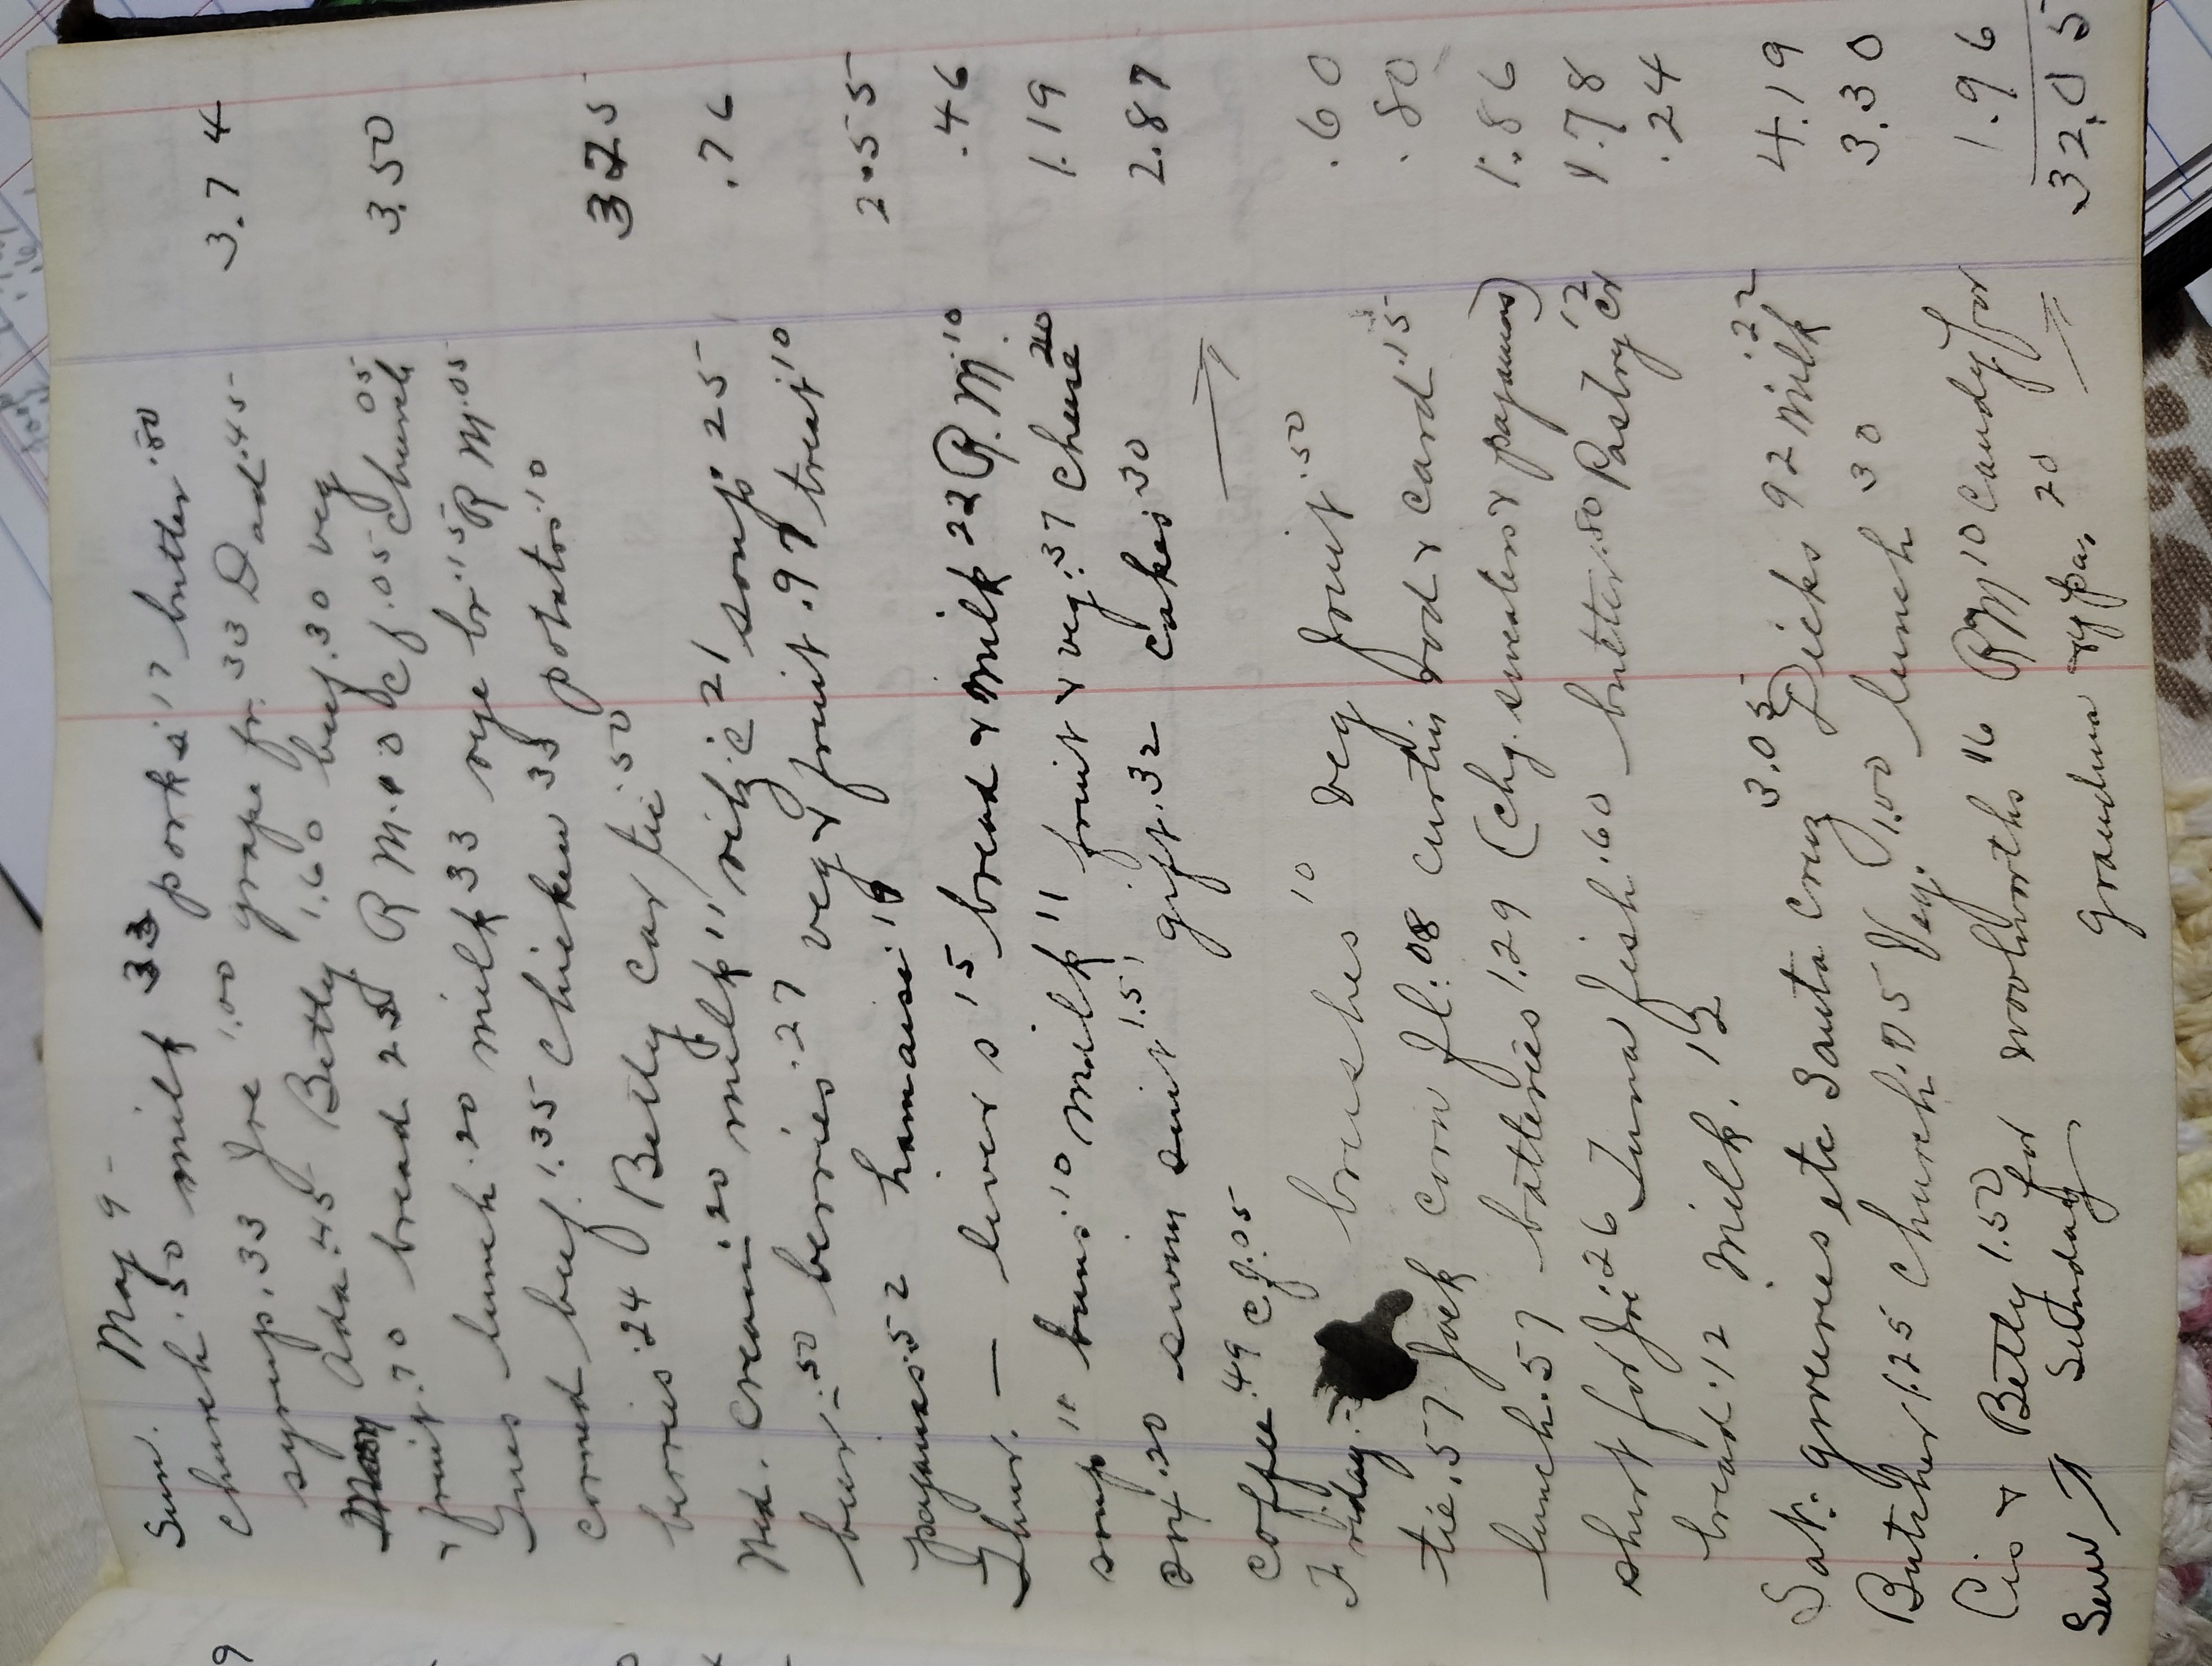 May 9 -
Sun. church .50 milk 33 pork .17 butter .80
syrup .33 Joe 1.00 grape fr. 33 Dad .45 3.74
Ada .45 Betty 1.60 buy .30 veg
fruit .70 bread 25 R M .10 C f .05 Church .05 3.50
Tues lunch .20 milk 33 rye br .15 R M .05
corned beef 1.35 chicken 33 potatoes .10
berries .24 Betty car fare .50 3.25
Wed. cream .20 milk 11 ritz .21 soup .25 .76
bur .50 berries .27 veg & fruit .97 treat .10
pajamas .52 2.55
Thur. — liver s .15 bread & milk 22 R. M. .10 .46
soup 11 buns .10 milk 11 fruit & veg .37 cheese 20 1.19
ort .20 swim suit 1.51 gift .32 cakes .30 2.87
coffee .49 C. f. .05
Friday - brushes 10 veg fruit .50 .60
tie .57 Jack corn fl. .08 curtin rod & card .15 .80
lunch .57 batteries 1.29 (chg. sweaters & pajamas) 1.86
shirt for Joe .26 Tuna fish .60 butter .80 Pastry .12 1.78
bread .12 milk .12 .24
Sat. groceries etc Santa Cruz 3.05 Dicks 92 milk .22 4.19
Butcher 1.25 church .75 Veg. 1.00 lunch 30 3.30
Cis & Betty 1.50 for woolworths 16 R M 10 Candy for 1.96
Sew Sunday grandma & pa, 20 32.05
9